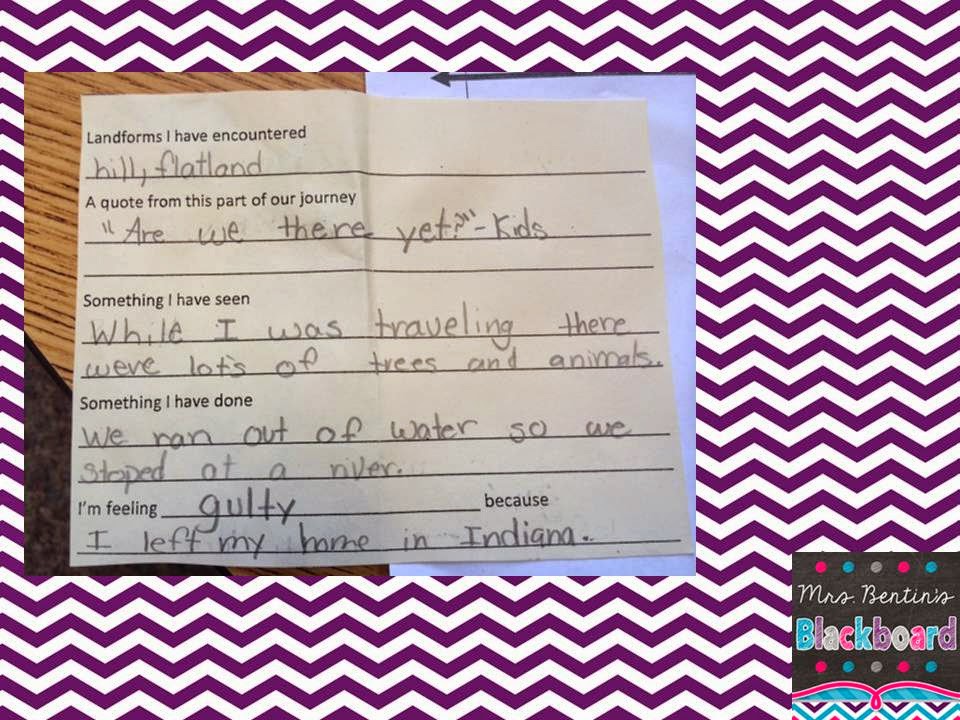 Landforms I have encountered
hill, flatland
A quote from this part of our journey
"Are we there yet?"-Kids
Something I have seen
While I was traveling there
were lots of trees and animals.
Something I have done
We ran out of water so we
stoped at a river.
I'm feeling gulty because
I left my home in Indiana.
Mrs. Bentin's
Blackboard